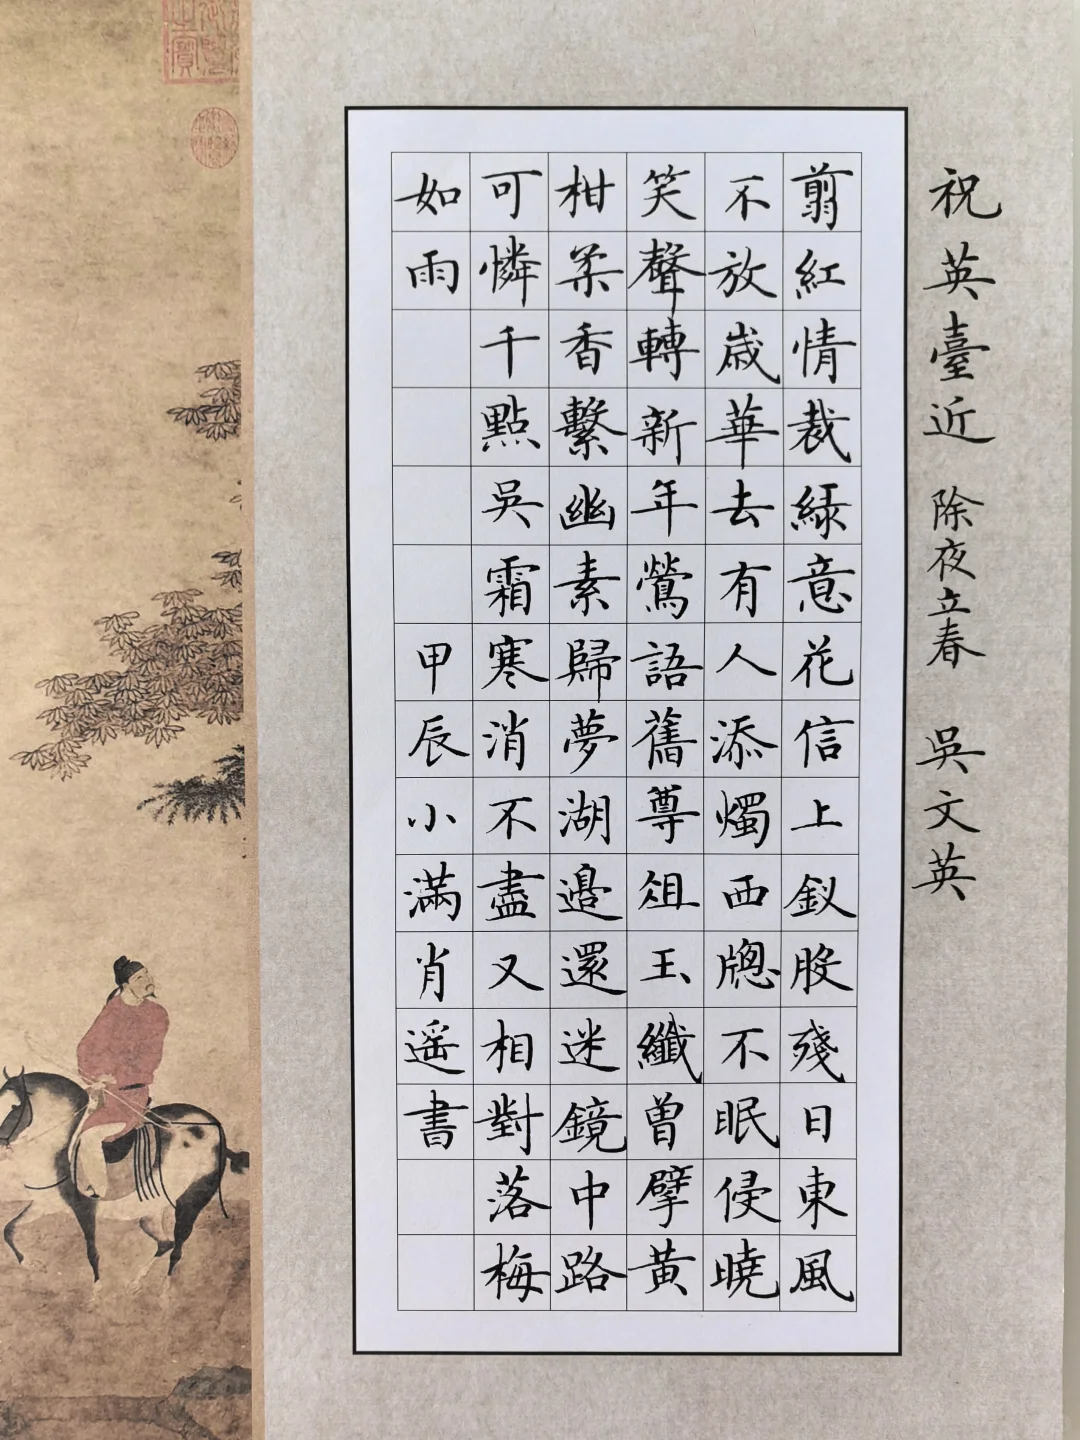 祝英臺近 除夜立春 吳文英
剪紅情裁綠意花信上釵股殘日東風
不放歲華去有人添燭西牕不眠侵曉
笑聲轉新年鶯語舊尊俎玉纖曾擘黃
柑柔香繫幽素歸夢湖邊還迷鏡中路
可憐千點吳霜寒消不盡又相對落梅
如雨 甲辰小滿肖遥書